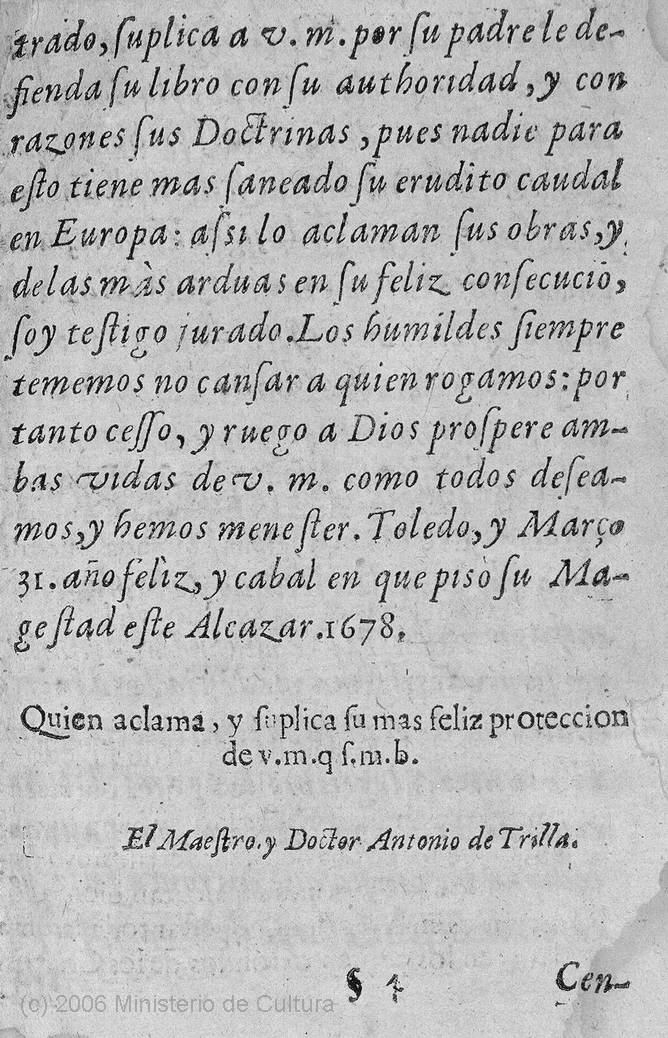 trado, ſuplica a v. m. por ſu padre le de-
fienda ſu libro con ſu authoridad, y con
razones ſus Doctrinas, pues nadie para
eſto tiene mas ſaneado ſu erudito caudal
en Europa: aſsi lo aclaman ſus obras, y
de las màs arduas en ſu feliz conſecuciō,
ſoy teſtigo jurado. Los humildes ſiempre
tememos no canſar a quien rogamos: por
tanto ceſſo, y ruego a Dios proſpere am-
bas vidas de v. m. como todos deſea-
mos, y hemos meneſter. Toledo, y Março
31. año feliz, y cabal en que pisò ſu Ma-
geſtad eſte Alcazar. 1678.
Quien aclama, y ſuplica ſu mas feliz proteccion
de v.m.q ſ.m.b.
El Maeſtro. y Doctor Antonio de Trilla.
§ 4 Cen-
(c) 2006 Ministerio de Cultura